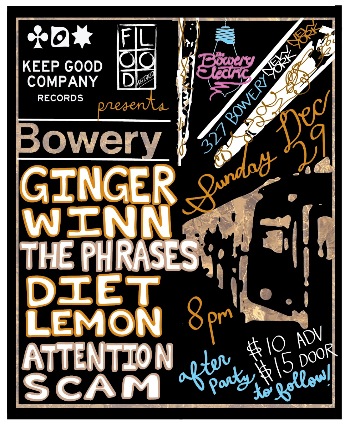 KEEP GOOD
COMPANY
RECORDS
FLOOD
presents
The Bowery
Electric
327 BOWERY
NEW YORK
Bowery
Sunday Dec
29
GINGER
WINN
THE PHRASES
DIET
LEMON
ATTENTION
SCAM
8pm
$10 ADV
$15 DOOR
after
Party
to follow!